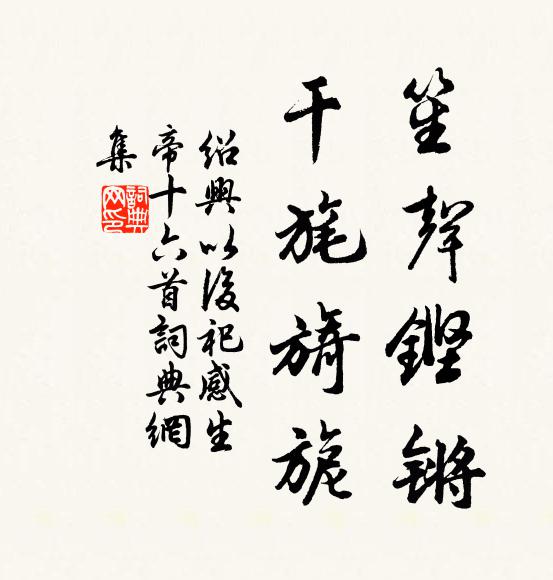 笙聲鏗鏘
干旄旖旎
紹興以後祀感生
帝十六首詞典網
集
詞典
网印